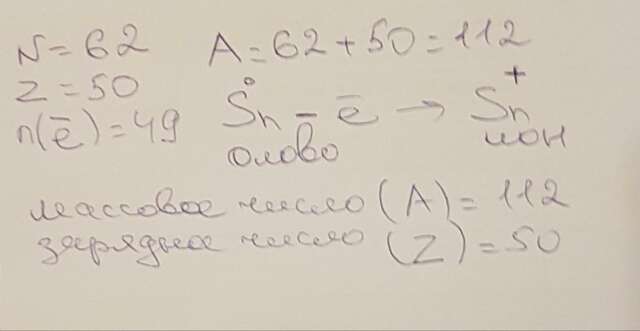 N = 62 A = 62 + 50 = 112
Z = 50
n(ē) = 49 Sn⁰ - ē → Sn⁺
олово ион
массовое число (A) = 112
зарядное число (Z) = 50